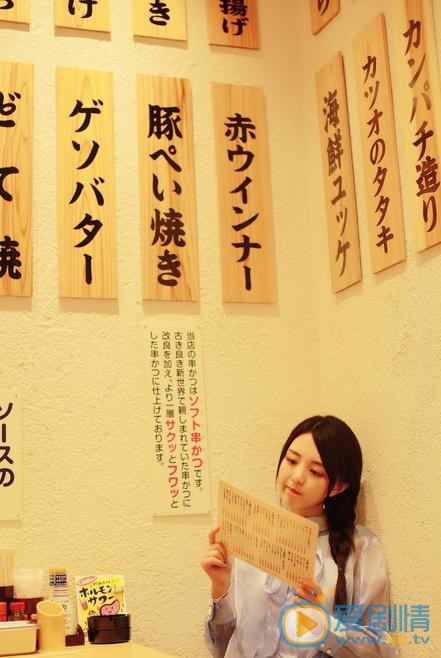 カンパチ造り
カツオのタタキ
海鮮ユッケ
揚げ
赤ウインナー
き
豚ぺい焼き
け
ゲソバター
どて焼
ソースの
当店の串かつはソフト串かつです。
古き良き新世界で親しまれていた串かつに
改良を加え、より一層サクッとフワッと
した串かつに仕上げております。
ホルモン
サワー
爱剧情
www..tv